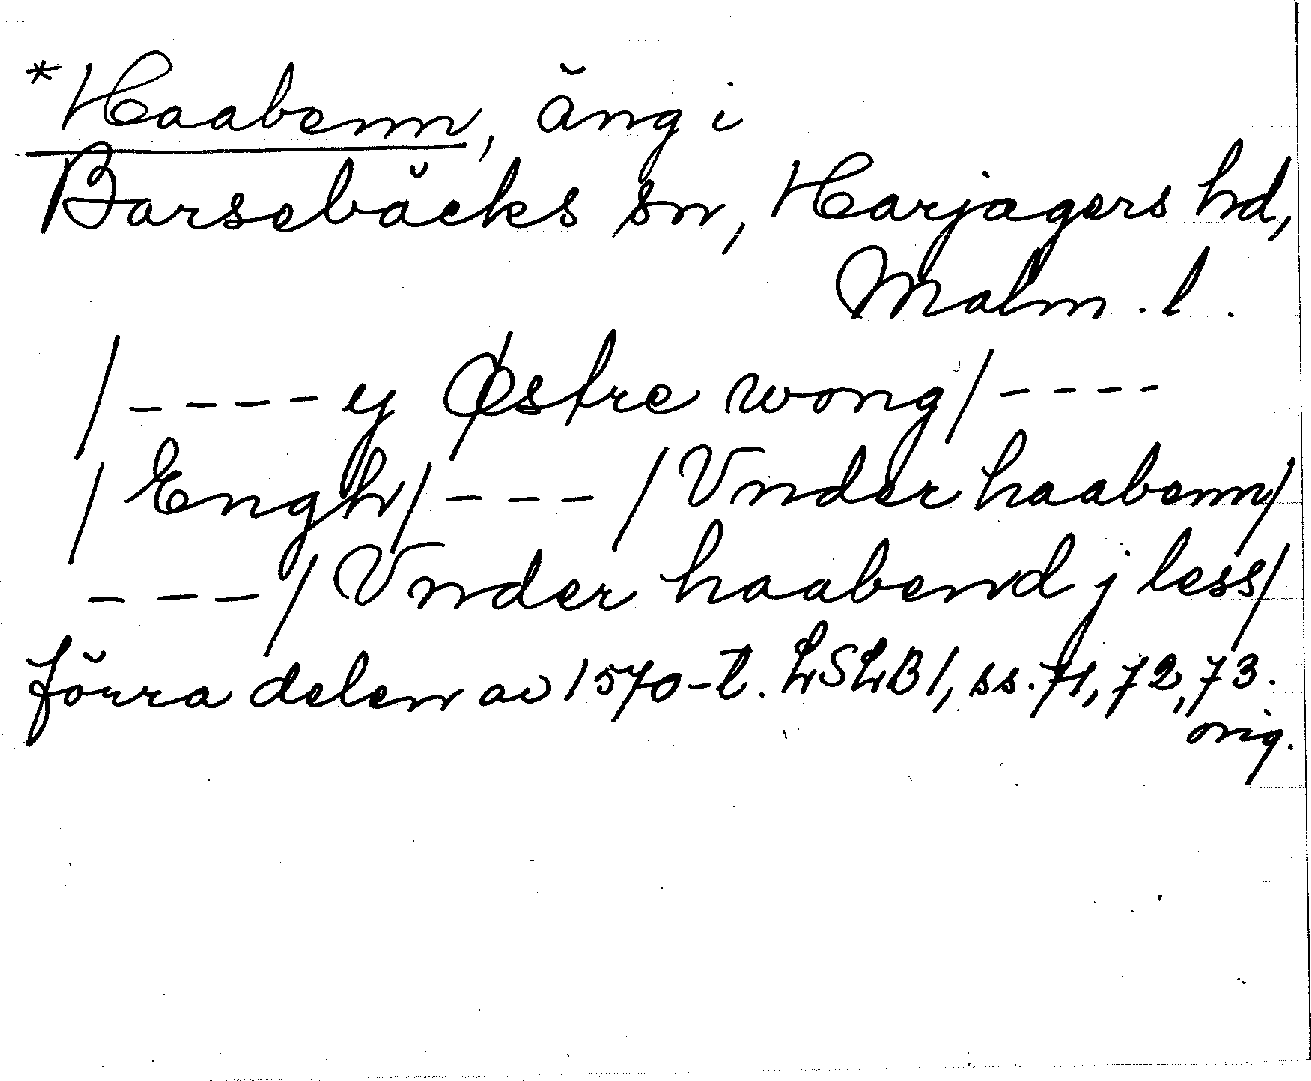 *Haabenn, äng i
Barsebäcks sn, Harjagers hd,
Malm. l.
/----y Østre wong/----
/Engh/---/Vnder haabenn/
---/Vnder haabend j less/
förra delen av 1570-t. LSLB1, ss. 71, 72, 73.
orig.